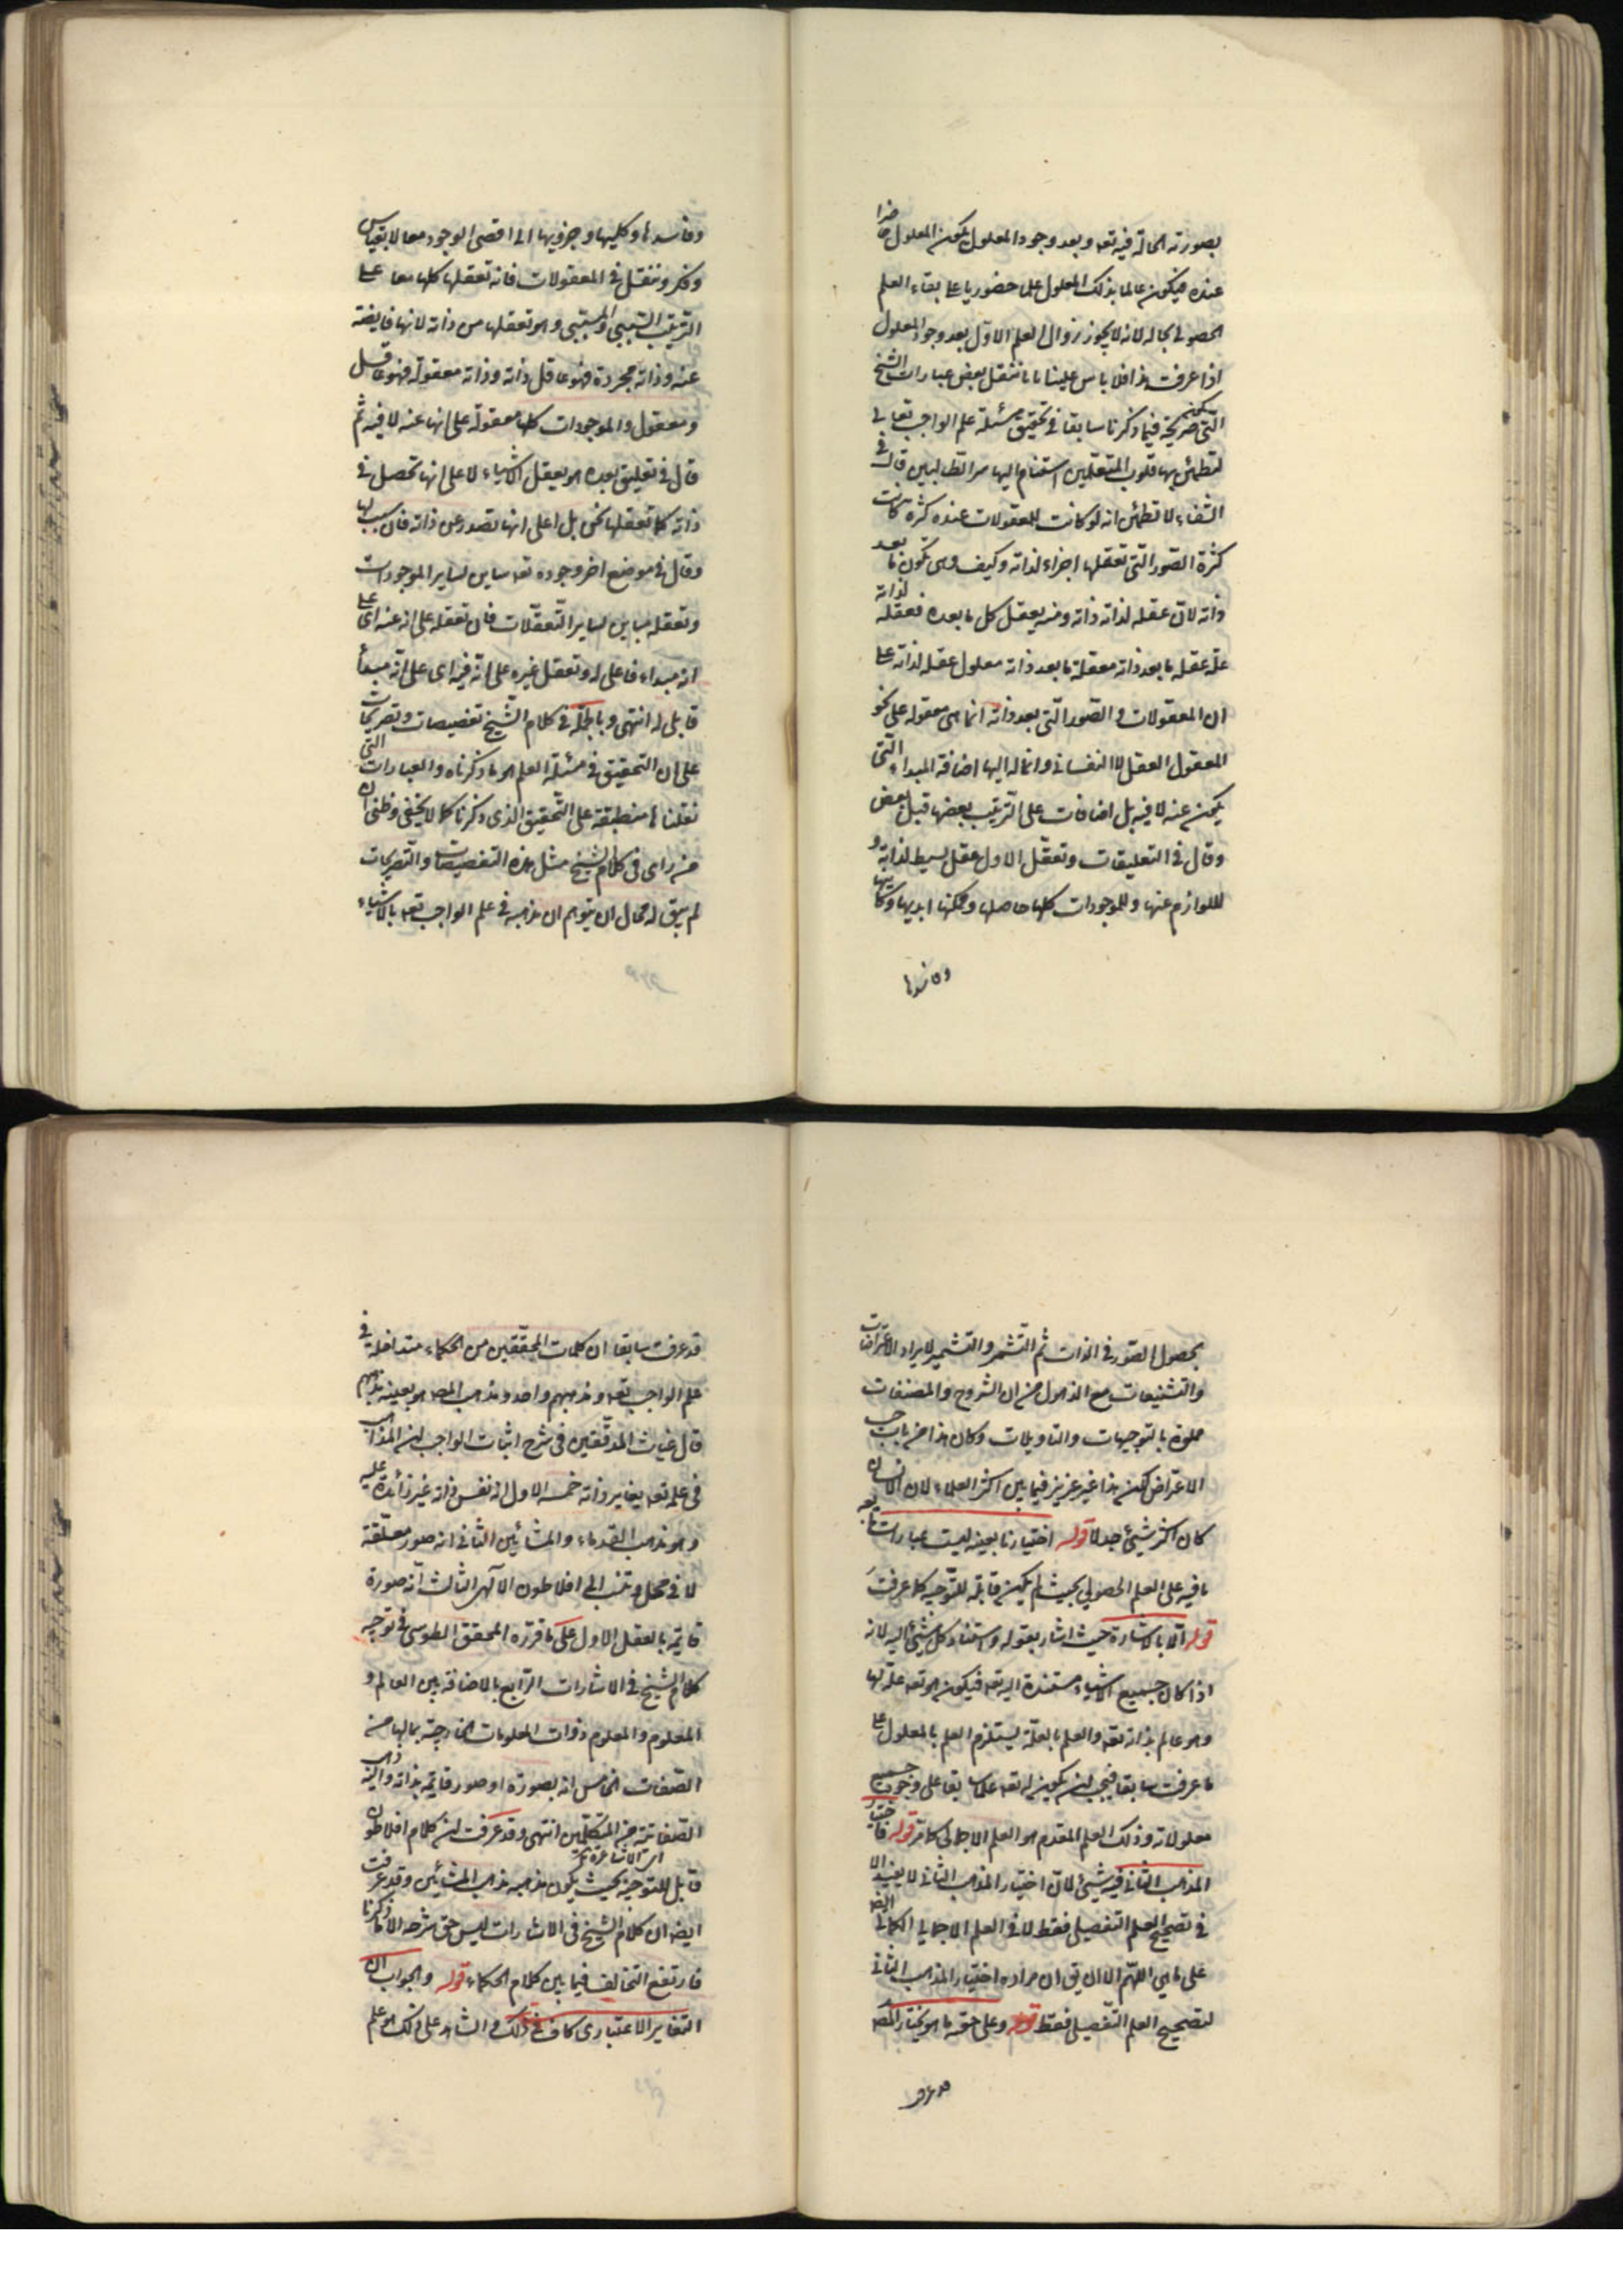 بصورته الحالّة فيه تعه وبعد وجود المعلول يكون المعلول حاضرا
عنده فيكون عالما بذلك المعلول علما حضوريا على بقاء العلم
الحصولى بحاله لانه لا يجوز زوال العلم الاوّل بعد وجود المعلول
اذا عرفت هذا فلا باس علينا بان ننقل بعض عبارات الشيخ
التى صريحة فيما ذكرنا سابقا فى تحقيق مسئلة علم الواجب تعالى
لتطمئن بها قلوب المتعلّمين استنام اليها من الطالبين قال فى
الشفاء لا تظنن انه لو كانت للمعقولات عنده كثرة كانت
كثرة الصور التى تعقلها اجزاء لذاته وكيف وهى تكون بعد
ذاته لانّ عقله لذاته ذاته ومنه يعقل كل ما بعده فعقله لذاته
علّة عقله ما بعد ذاته معقلة ما بعد ذاته معلول عقله لذاته على
ان المعقولات والصور الّتى بعد ذاته انما هى معقولة على نحو
المعقول العقل لا النفسانى وانما له اليها اضافة المبداء الّتى
يكون عنه لا فيه بل اضافات على الترتيب بعضها قبل بعض
وقال فى التعليقات وتعقّل الاول عقل بسيط لذاته و
للوازم عنها وللموجودات كلها حاصلها وممكنها ابديها وكاينها
وفاسدها
وفاسدها وكليها وجزويها الى اقصى الوجود معا لا بقياس
وفكر وتنقل فى المعقولات فانه تعقلها كلها معا على
الترتيب السّببى والمسبّبى وهو تعقلها من ذاته لانها فايضة
عنه وذاته مجردة فهو عاقل ذاته وذاته معقولة فهو عاقل
ومعقول والموجودات كلها معقولة على انها عنه لا فيه ثم
قال فى تعليق بعده هو يعقل الاشياء لا على انها تحصل فى
ذاته كما تعقلها نحن بل على انها تصدر عن ذاته فان سبب لها
وقال فى موضع اخر وجوده تعه مباين لساير الموجودات
وتعقله مباين لساير التعقّلات فان تعقله على انه عنه اى على
انه مبداء فاعلى له وتعقل غيره على انّه فيه اى على انّه مبدأ
قابلى له انتهى وبالجملة فى كلام الشيخ تفصيصات وتصريحات
على ان التحقيق فى مسئلة العلم هو ما ذكرناه والعبارات التى
نقلناها منطبقة على التحقيق الذى ذكرنا كما لا يخفى وظنى ان
من راى فى كلام الشيخ مثل هذه التفصيصات والتصريحات
لم يبق له مجال ان يتوهم ان مذهبه فى علم الواجب تعه بالاشياء
بحصول الصّور فى الذات ثم التشمر والتشمير لايراد الاعتراضات
والتشنيعات مع الذهول من ان الشروح والمصنفات
مملوة بالتوجيهات والتاويلات وكان هذا من باب حب
الاعتراض لكن هذا غير عزيز فيما بين اكثر العلماء لان الانسان
كان اكثر شيئ جدلا قوله اختيارنا بعينه ليست عبارات تابعه
نافيه على العلم الحصولى بحيث لم يكن قابلة للتوجيه كما عرفت
قوله الّا بالاشارة حيث اشار بقوله واستناد كل شيئ اليه لانه
اذا كان جميع الاشياء مستندة اليه تعه فيكون هو تعه علّة لها
وهو عالم بذاته تعه والعلم بالعلّة يستلزم العلم بالمعلول على
ما عرفت سابقا فيجب ان يكون له تعه علما سابقا على وجود جميع
معلولاته وذلك العلم المقدم هو العلم الاجمالى كما مر قوله فاختير
المذهب الثانى فيه شيئ لانّ اختيار المذهب الثانى لا يفيد الا
فى تصحيح العلم التفصيلى فقط لا فى العلم الاجمالى الكمالى ايضا
على ما هى اللّهم الا ان يق ان مراده اختيار المذهب الثانى
لتصحيح العلم التّفصيلى فقط قوله وعلى حقيّة ما هو مختار المصه
قد عرفت
قد عرفت سابقا ان كلمات المحقّقين من الحكماء متداخلة فى
علم الواجب تعه ومذهبهم واحد ومذهب المصه هو بعينه مذهبهم
قال غياث المدقّقين فى شرح اثبات الواجب ان المذاهب
فى علمه تعه بغاير ذاته خمسه الاول انه نفس ذاته غير زائدة عليه
وهو مذهب القدماء والمشائين الثانى انه صور معلّقة
لا فى محل وتنسب الى افلاطون الآلهى الثالث انّه صورة
قايمة بالعقل الاول على ما قرّره المحقق الطوسى فى توجيه
كلام الشيخ فى الاشارات الرّابع بالاضافة بين العالم و
المعلوم والمعلوم ذوات المعلومات الخارجيّة بمالها من
الصّفات الخامس انه بصورة او صور قايمة بذاته والين ذاهب
الصّفاتيّة من المتكلّمين انتهى وقد عرفت ان كلام افلاطون
اى الاشاعرة
قابل للتوجيه بحيث يكون مذهبه مذهب المشائين وقد عرفت
ايضا ان كلام الشيخ فى الاشارات ليس حق شرحه الا ما ذكرنا
فارتفع التخالف فيما بين كلام الحكماء قوله والجواب ان
التّغاير الاعتبارى كاف فى ذلك والشاهد على ذلك هو علم